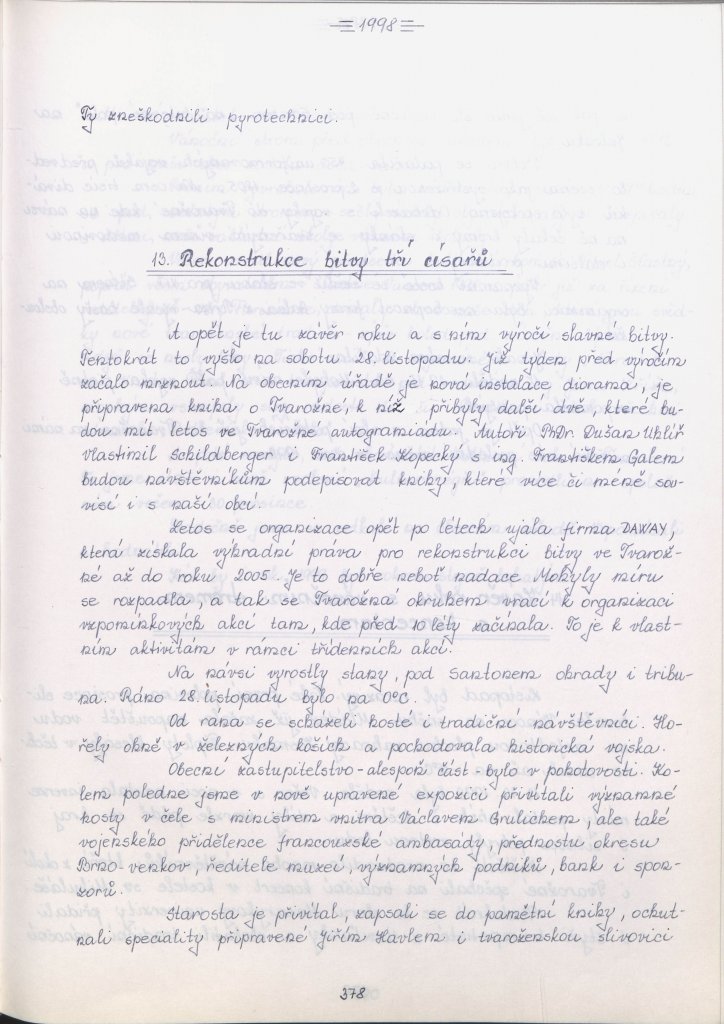 1998
Ty zneškodnili pyrotechnici.
13. Rekonstrukce bitvy tří císařů
A opět je tu závěr roku a s ním výročí slavné bitvy.
Tentokrát to vyšlo na sobotu 28. listopadu. Již týden před výročím
začalo mrznout. Na obecním úřadě je nová instalace diorama, je
připravena kniha o Tvarožné, k níž přibyly další dvě, které bu-
dou mít letos ve Tvarožné autogramiádu. Autoři PhDr. Dušan Uhlíř
Vlastimil Schildberger i František Kopecký s ing. Františkem Galem
budou návštěvníkům podepisovat knihy, které více či méně sou-
visí i s naší obcí.
Letos se organizace opět po létech ujala firma DAWAY,
která získala výhradní práva pro rekonstrukci bitvy ve Tvarož-
né až do roku 2005. Je to dobře neboť nadace Mohyly míru
se rozpadla, a tak se Tvarožná okruhem vrací k organizaci
vzpomínkových akcí tam, kde před 10 léty začínala. To je k vlast-
ním aktivitám v rámci třídenních akcí.
Na návsi vyrostly stany, pod Santonem ohrady i tribu-
na. Ráno 28. listopadu bylo na 0°C.
Od rána se scházeli hosté i tradiční návštěvníci. Ho-
řely ohně v železných koších a pochodovala historická vojska.
Obecní zastupitelstvo - alespoň část - bylo v pohotovosti. Ko-
lem poledne jsme v nově upravené expozici přivítali významné
hosty v čele s ministrem vnitra Václavem Grulichem, ale také
vojenského přidělence francouzské ambasády, přednostu okresu
Brno-venkov, ředitele muzeí, významných podniků, bank i spon-
zorů.
Starosta je přivítal, zapsali se do pamětní knihy, ochut-
nali speciality připravené Jiřím Havlem i tvaroženskou slivovici
378